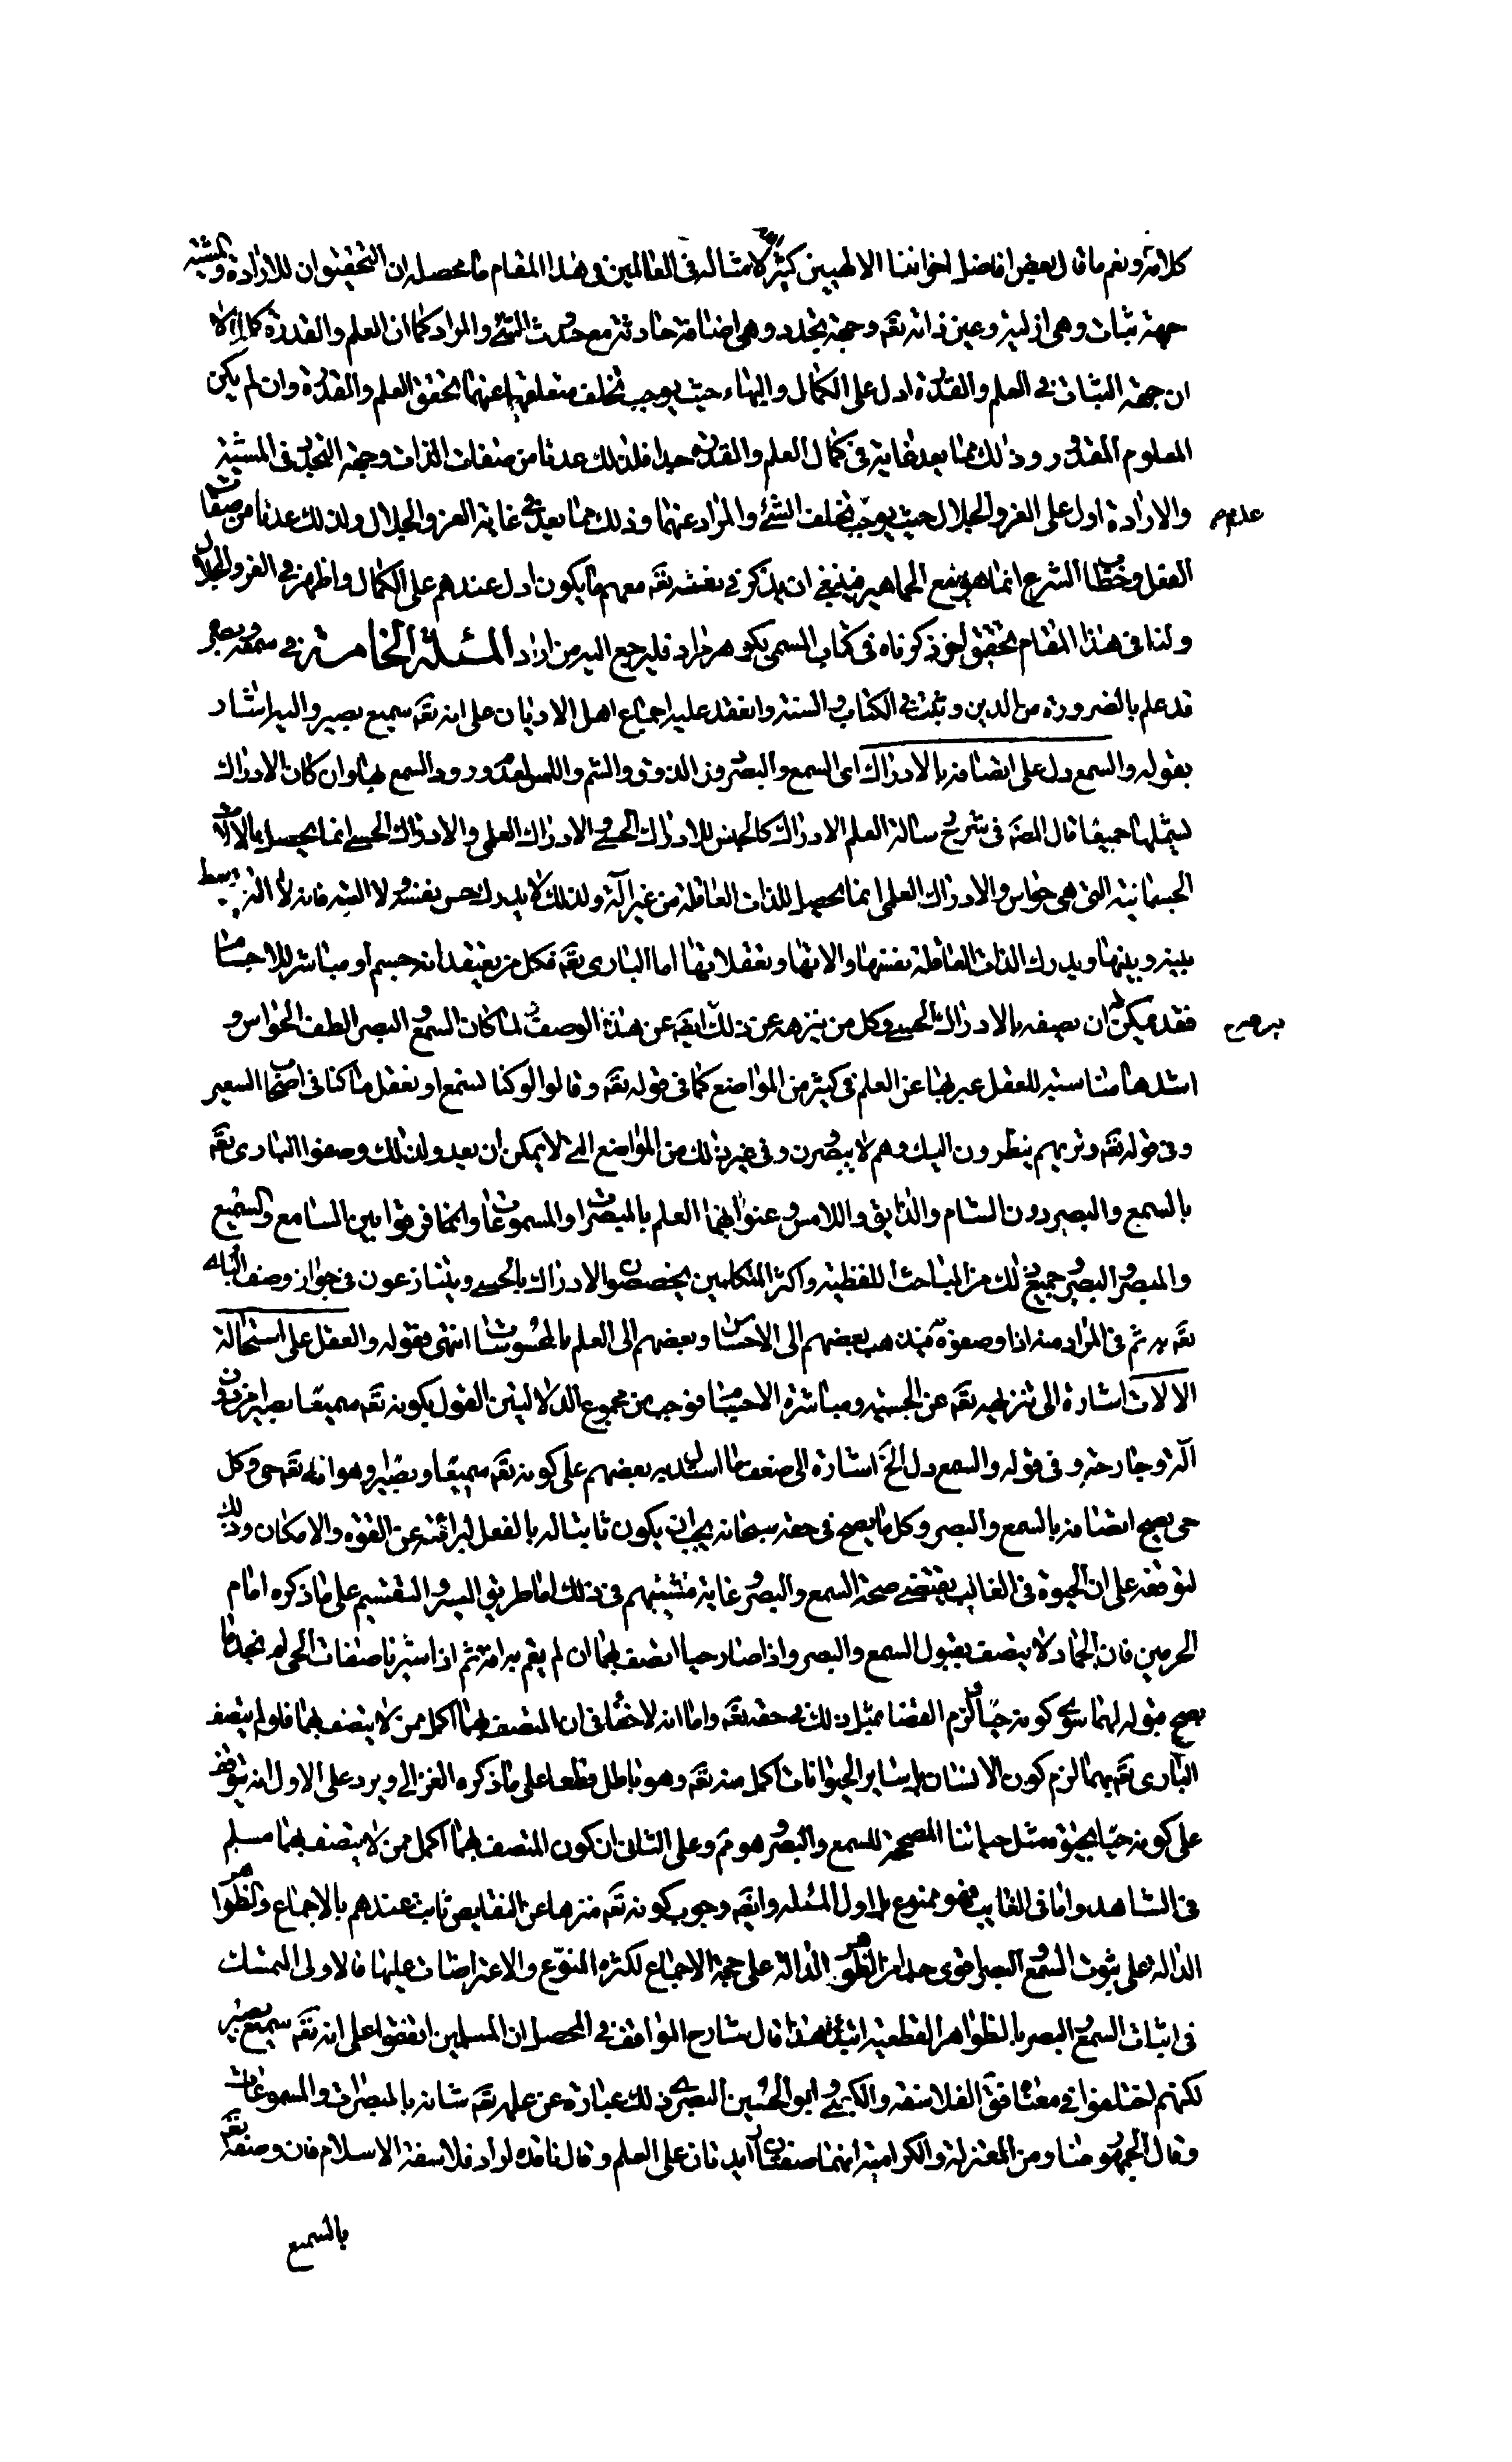 كلامه ونعم ما قال بعض افاضل اخواننا الالهيين كثر الله امثاله فى العالمين فى هذا المقام ما محصله ان التحقيق ان للارادة والمشية
جهة ثبات وهى ازلية وعين ذاته تقه وجهة تجدد وهى اضافة حادثة مع حدوث الشئ والمراد كما ان العلم والقدرة كذلك الا
ان جهة الثبات فى العلم والقدرة ادل على الكمال والبهاء حيث يوجب تخلف متعلقهما عنهما تحقق العلم والقدرة وان لم يكن
المعلوم المقدور وذلك مما يعد غاية فى كمال العلم والقدرة جدا فلذلك عدتا من صفات الذات وجهة التجدد فى المشية
والارادة ادل على العز والجلال حيث يوجب تخلف الشئ والمراد عنهما وذلك مما يعد فى غاية العز والجلال ولذلك عدتا من صفات
عدم
الفعل وخطاب الشرع انما هو مع الجماهير فينبغى ان يذكر فى نفسه تقه معهم ما يكون ادل عندهم على الكمال واظهر فى العز والجلال
ولنا فى هذا المقام تحقيق اخر ذكرناه فى كتاب المسمى بكوهر مراد فليرجع اليه من اراد المسئلة الخامسة فى سمعه وبصره
قد علم بالضرورة من الدين وثبت فى الكتاب والسنة وانعقد عليه اجماع اهل الاديان على انه تقه سميع بصير واليه اشار
بقوله والسمع دل على اتصافه بالادراك اى السمع والبصر دون الذوق والشم واللمس لعدم ورود السمع بها وان كان الادراك
يشملها جميعا قال المصه فى شرح رسالة العلم الادراك كالجنس للادراك الحسى والادراك العلمى والادراك الحسى انما يحصل بالالات
الجسمانية التى هى حواس والادراك العلمى انما يحصل للذات العاقلة من غير آلة ولذلك لا يدرك حس نفسه ولا الته فانه لا آلة يتوسط
بينه وبينها ويدرك الذات العاقلة نفسها والاتها وتعقلاتها اما البارى تقه فكل من يعتقد انه جسم او مباشر للاجسام
فقد يمكن ان يصفه بالادراك الحسى وكل من ينزهه عن ذلك ايضه عن هذا الوصف ولما كان السمع والبصر الطف الحواس و
اشدها مناسبة للعقل عبر بهما عن العلم فى كثير من المواضع كما فى قوله تقه وقالوا لو كنا نسمع او نعقل ما كنا فى اصحاب السعير
وفى قوله تقه وتريهم ينظرون اليك وهم لا يبصرون وفى غير ذلك من المواضع التى لا يمكن ان يعد ولذلك وصفوا البارى تقه
بالسمع والبصر دون الشام والذايق واللامس وعنوا بهما العلم بالمبصرات او المسموعات وانما فرقوا بين السامع والسميع
والمبصر والبصير وجميع ذلك من المباحث اللفظية واكثر المتكلمين يخصصون الادراك بالحسى ويتنازعون فى جواز وصف البارى
تقه به ثم فى المراد منه اذا وصفوه فيذهب بعضهم الى الاحساس وبعضهم الى العلم بالمحسوسات انتهى فقوله والعقل على استحالة
الالات اشارة الى تنزيهه تقه عن الجسمية ومباشرة الاجسام فوجب من مجموع الدلالتين القول بكونه تقه سميعا بصيرا من دون
آلة وجارحة وفى قوله والسمع دل الخ اشارة الى ضعف ما استدل به بعضهم على كونه تقه سميعا وبصيرا وهو انه تقه حى وكل
حى يصح اتصافه بالسمع والبصر وكل ما يصح فى حقه سبحانه يجب ان يكون ثابتا له بالفعل لبرائته عن القوة والامكان وذلك
لتوقفه على ان الحيوة فى الغايب يقتضى صحة السمع والبصر وغاية متشبثهم فى ذلك اما طريق السبر والتقسيم على ما ذكره امام
الحرمين فان الجماد لا يتصف بقبول السمع والبصر واذا صار حيا اتصف بهما ان لم يقم به آفة ثم اذا سبرنا صفات الحى لم نجد ما
يصحح قبوله لهما سوى كونه حيا لزم القضا بمثل ذلك فى حقه تقه واما انه لا خفاء فى ان المتصف بهما اكمل ممن لا يتصف بهما فلو لم يتصف
البارى تقه بهما لزم كون الانسان بل ساير الحيوانات اكمل منه تقه وهو باطل قطعا على ما ذكره الغزالى ويرد على الاول انه يتوقف
على كونه حيا بحيوة مثل حياتنا المصححة للسمع والبصر وهو مم وعلى الثانى ان كون المتصف بهما اكمل ممن لا يتصف بهما مسلم
فى الشاهد واما فى الغايب فهو ممنوع بل اول المسئلة وايضه وجوب كونه تقه منزها عن النقايص ثابت عندهم بالاجماع والظواهر
الدالة على ثبوت السمع والبصر اقوى جدا من الظواهر الدالة على حجية الاجماع لكثرة المنوع والاعتراضات عليها فالاولى التمسك
فى اثبات السمع والبصر بالظواهر القطعية ابتداء هذا قال شارح المواقف فى المحصل ان المسلمين اتفقوا على انه تقه سميع بصير
لكنهم اختلفوا فى معناه فقالت الفلاسفة والكعبى وابو الحسين البصرى ذلك عبارة عن علمه تقه شانه بالمبصرات والمسموعات
وقال الجمهور منا ومن المعتزلة والكرامية انهما صفتان زايدتان على العلم وقال ناقده اراد فلاسفة الاسلام فان وصفه تقه
بالسمع